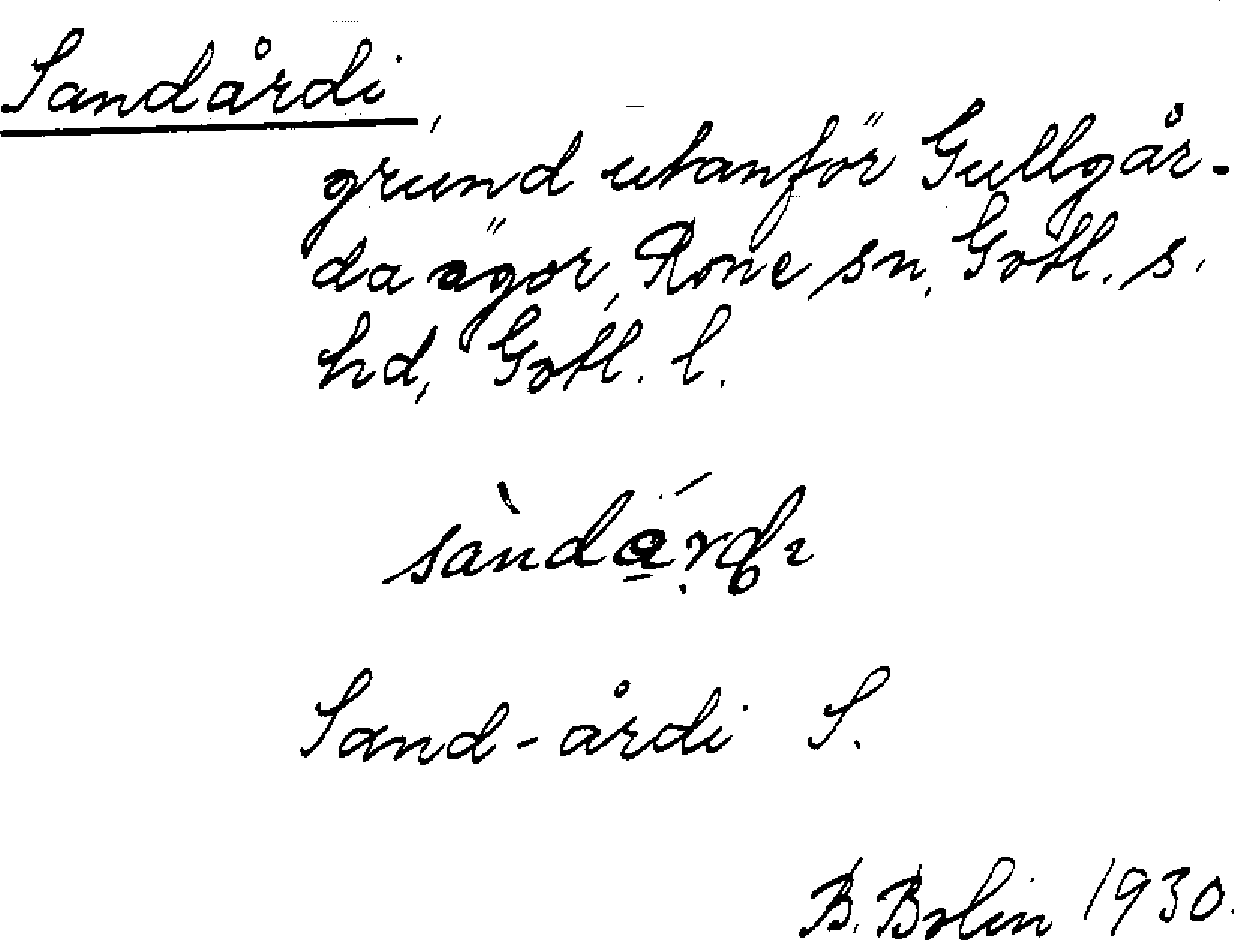 Sandårdi,
grund utanför Gullgår-
da ägor, Rone sn, Gotl. s.
hd, Gotl. l.
Sand-årdi S.
B. Bolin 1930.